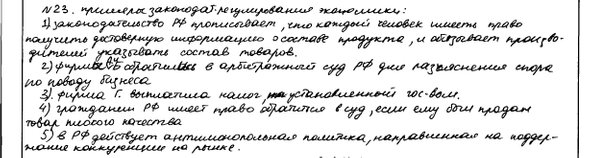 №23. Примеры законодат. регулирования экономики:
1) законодательство РФ прописывает, что каждый человек имеет право
получить достоверную информацию о составе продукта, и обязывает произво-
дителей указывать состав товаров.
2) фирмы обратились в арбитражный суд РФ для разъяснения спора
по поводу бизнеса
3). Фирма Г. выплатила налог, установленный гос-вом.
4) гражданин РФ имеет право обратится в суд, если ему был продан
товар плохого качества
5) в РФ действует антимонопольная политика, направленная на поддер-
жание конкуренции на рынке.